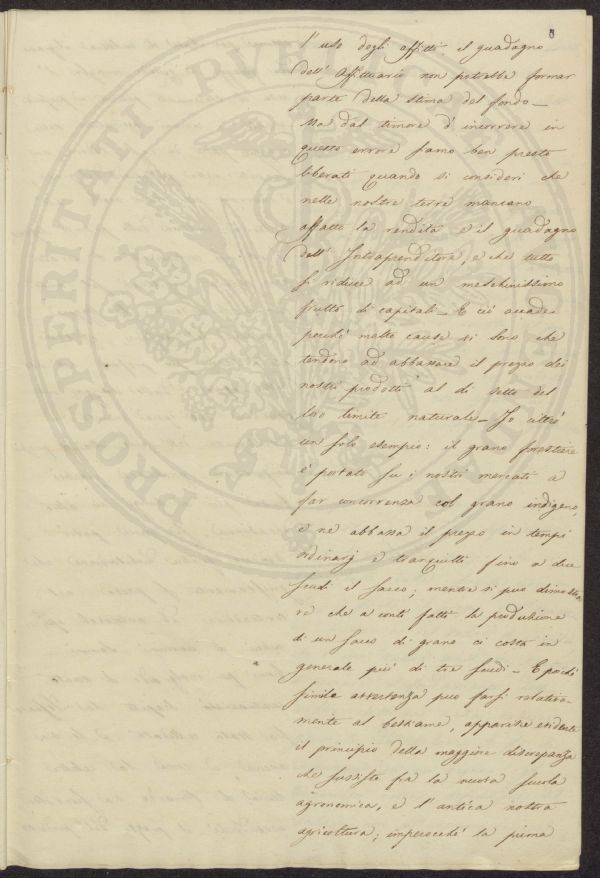 8
l'uso degli affitti il guadagno
dell'Affittuario non potrebbe formar
parte della stima del fondo_
Ma dal timore d'incorrere in
questo errore siamo ben presto
liberati quando si consideri che
nelle nostre terre mancano
affatto la rendita e il guadagno
dell'Intraprenditore, e che tutto
si riduce ad un meschinissimo
frutto di capitali_ E ciò accade
perchè molte cause vi sono che
tendono ad abbassare il prezzo dei
nostri prodotti al di sotto del
loro limite naturale_ Io citerò
un solo esempio: il grano forestiere
è portato su i nostri mercati a
far concorrenza col grano indigeno,
e ne abbassa il prezzo in tempi
ordinarj e tranquilli fino a due
scudi il sacco; mentre si può dimostra
re che a conti fatti la produzione
di un sacco di grano ci costa in
generale più di tre scudi_ E poichè
simile avvertenza può farsi relativa
mente al bestiame, apparisce evidente
il principio della maggiore discrepanza
che sussiste fra la nuova scuola
agronomica, e l'antica nostra
agricoltura; imperocchè la prima
PROSPERITATI PUBLICAE